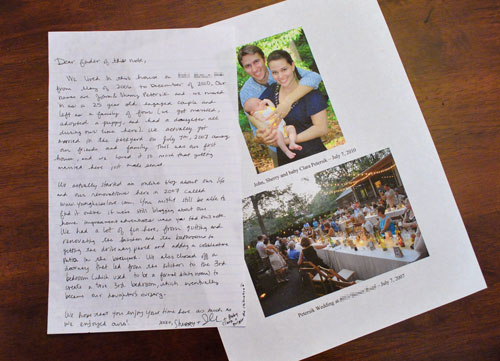 Dear finder of this note,
We lived in this house on
from May of 2006 to December of 2010. Our
names are John & Sherry Petersik and we moved
in as a 23 year old, engaged couple and
left as a family of four (we got married,
adopted a puppy, and had a daughter all
during our time here). We actually got
married in the backyard on July 7th, 2007 among
our friends and family. This was our first
house, and we loved it so much that getting
married here just made sense.
We actually started an online blog about our life
and our renovations here in 2007 called
www.younghouselove.com. You might still be able to
find it online if we're still blogging about our
home improvement adventures when you find this note.
We had a lot of fun here, from gutting and
renovating the kitchen and the bathrooms to
getting the do-it-yourself and adding a
patio in the backyard. We also closed off a
doorway that led from the kitchen to the 3rd
bedroom (which used to be a formal dining room) to
create a true 3rd bedroom, which eventually
became our daughter's nursery.
We hope that you enjoy your time here as much as
we enjoyed ours!
xoxo, Sherry & John
& baby Clara
& Burger
John, Sherry and baby Clara Petersik - July 5, 2010
Petersik Wedding at - July 7, 2007